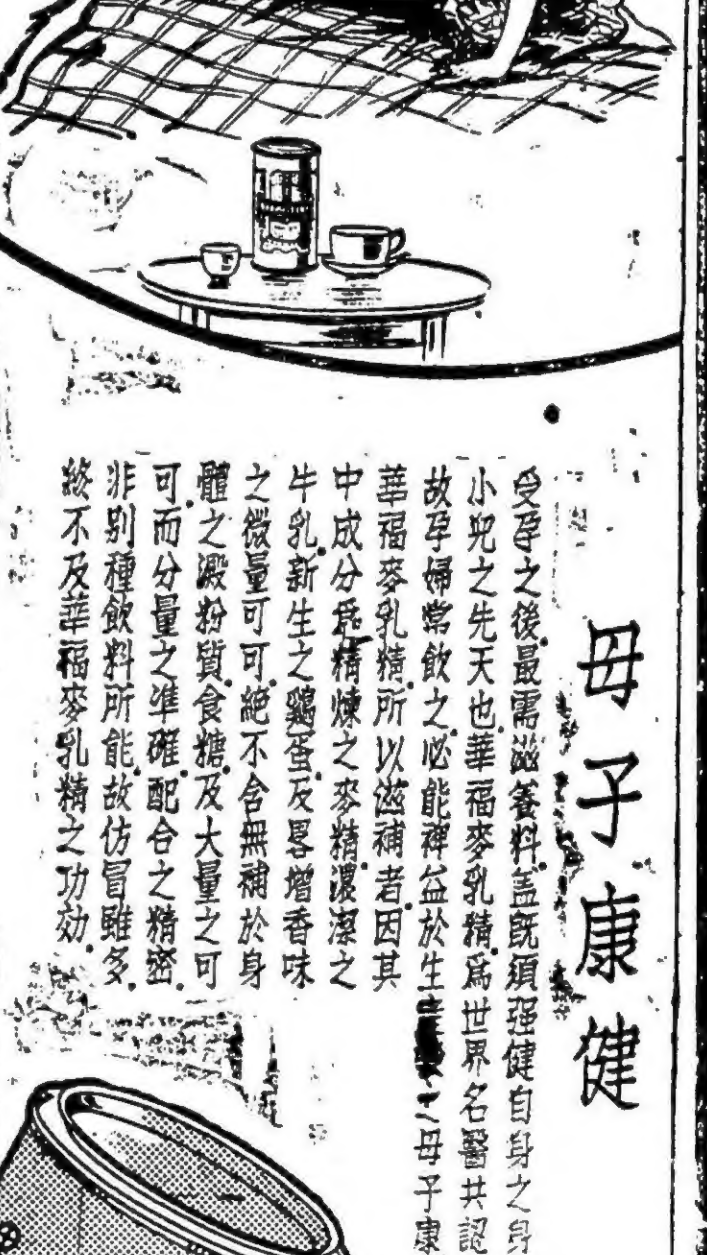 母子康健
受孕之後最需滋養料盖既須强健自身之身
小兒之先天也華福麥乳精爲世界名醫共認
故孕婦常飲之必能裨益於生之母子康
華福麥乳精所以滋補者因其
中成分爲精煉之麥精濃潔之
牛乳新生之鷄蛋及畧增香味
之微量可可絶不含無補於身
體之澱粉質食糖及大量之可
可而分量之準確配合之精密
非别種飲料所能故仿冒雖多
終不及華福麥乳精之功効